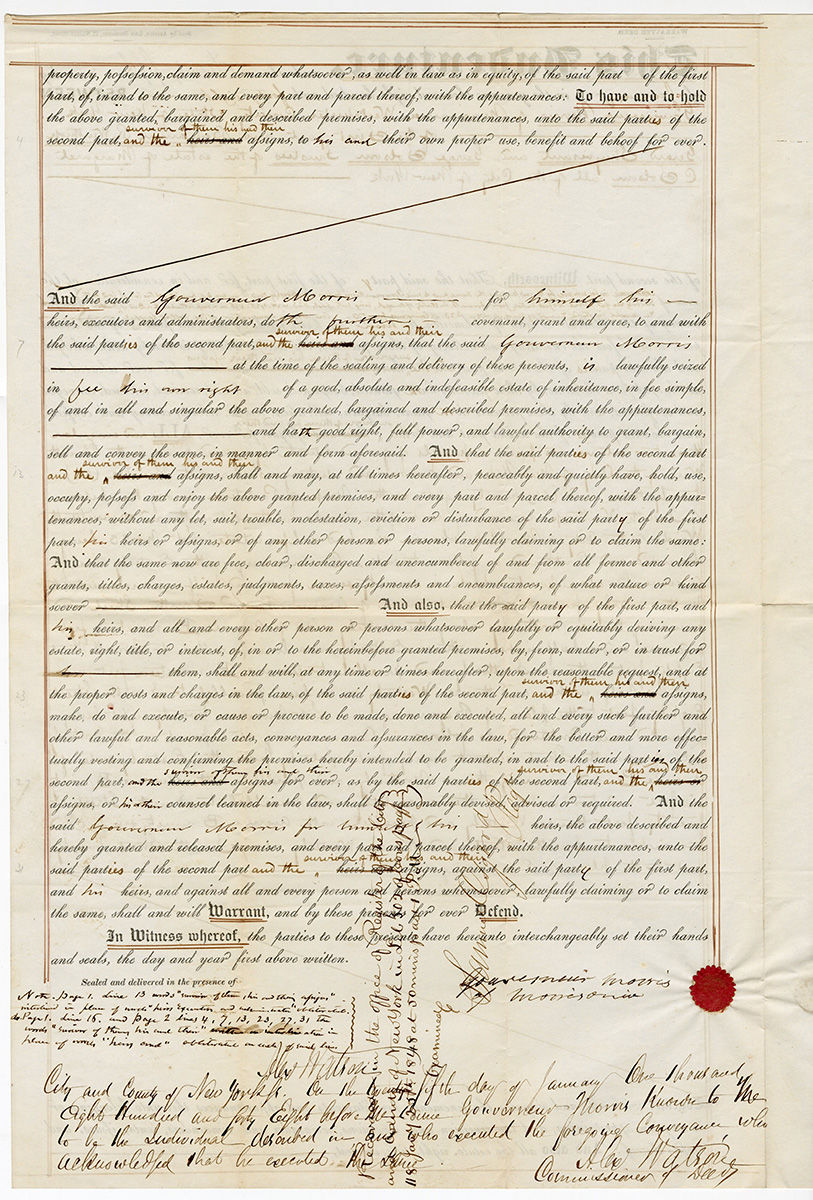 property, possession, claim and demand whatsoever, as well in law as in equity, of the said part of the first
part, of, in and to the same, and every part and parcel thereof, with the appurtenances: To have and to hold
the above granted, bargained and described premises, with the appurtenances, unto the said parties of the
survivor of them his and their
second part, and the ‸ heirs and assigns, to his and their own proper use, benefit and behoof for ever.
And the said Gouverneur Morris for himself his
heirs, executors and administrators, doth further covenant, grant and agree, to and with
survivor of them his and their
the said parties of the second part, and the heirs and assigns, that the said Gouverneur Morris
at the time of the sealing and delivery of these presents, is lawfully seized
in fee his own right of a good, absolute and indefeasible estate of inheritance, in fee simple,
of and in all and singular the above granted, bargained and described premises, with the appurtenances,
and hath good right, full power, and lawful authority to grant, bargain,
sell and convey the same, in manner and form aforesaid. And that the said parties of the second part
survivor of them his and their
and the ‸ heirs and assigns, shall and may, at all times hereafter, peaceably and quietly have, hold, use,
occupy, possess and enjoy the above granted premises, and every part and parcel thereof, with the appur-
tenances, without any let, suit, trouble, molestation, eviction or disturbance of the said party of the first
part, his heirs or assigns, or of any other person or persons, lawfully claiming or to claim the same:
And that the same now are free, clear, discharged and unencumbered of and from all former and other
grants, titles, charges, estates, judgments, taxes, assessments and encumbrances, of what nature or kind
soever And also, that the said party of the first part, and
his heirs, and all and every other person or persons whatsoever lawfully or equitably deriving any
estate, right, title, or interest, of, in or to the hereinbefore granted premises, by, from, under, or in trust for
them, shall and will, at any time or times hereafter, upon the reasonable request, and at
survivor of them his and their
the proper costs and charges in the law, of the said parties of the second part, and the ‸ heirs and assigns,
make, do and execute, or cause or procure to be made, done and executed, all and every such further and
other lawful and reasonable acts, conveyances and assurances in the law, for the better and more effec-
tually vesting and confirming the premises hereby intended to be granted, in and to the said parties of the
survivor of them his and their survivor of them his and their
second part, and the heirs and assigns for ever, as by the said parties of the second part, and the ‸ heirs or
assigns, or his or their counsel learned in the law, shall be reasonably devised, advised or required. And the
said Gouverneur Morris for himself his heirs, the above described and
hereby granted and released premises, and every part and parcel thereof, with the appurtenances, unto the
survivor of them his and their
said parties of the second part and the ‸ heirs and assigns, against the said party of the first part,
and his heirs, and against all and every person and persons whomsoever lawfully claiming or to claim
the same, shall and will Warrant, and by these presents for ever Defend.
In Witness whereof, the parties to these presents have hereunto interchangeably set their hands
and seals, the day and year first above written.
Sealed and delivered in the presence of
Gouverneur Morris
Morrisania
Note. Page 1. Line 13 words "survivor of them his and their assigns"
interlined in place of words "heirs Executors and administrators" obliterated.
do Page 1. Line 18. and Page 2 lines 4, 7, 13, 23, 27, 31 the
words "survivor of them his and their"
place of words "heirs and" obliterated
Alex Watson
Recorded in the office of Register of the City
and County of New York in Lib 502 of conv page
118 Jany 1848 at
Examined
City and County of New York ss. On the twenty fifth day of January One thousand
Eight Hundred and forty Eight before me came Gouverneur Morris Known to Me
to be the Individual described in, and who executed the foregoing Conveyance who
acknowledged that he executed the same
Alex Watson
Commissioner of Deeds